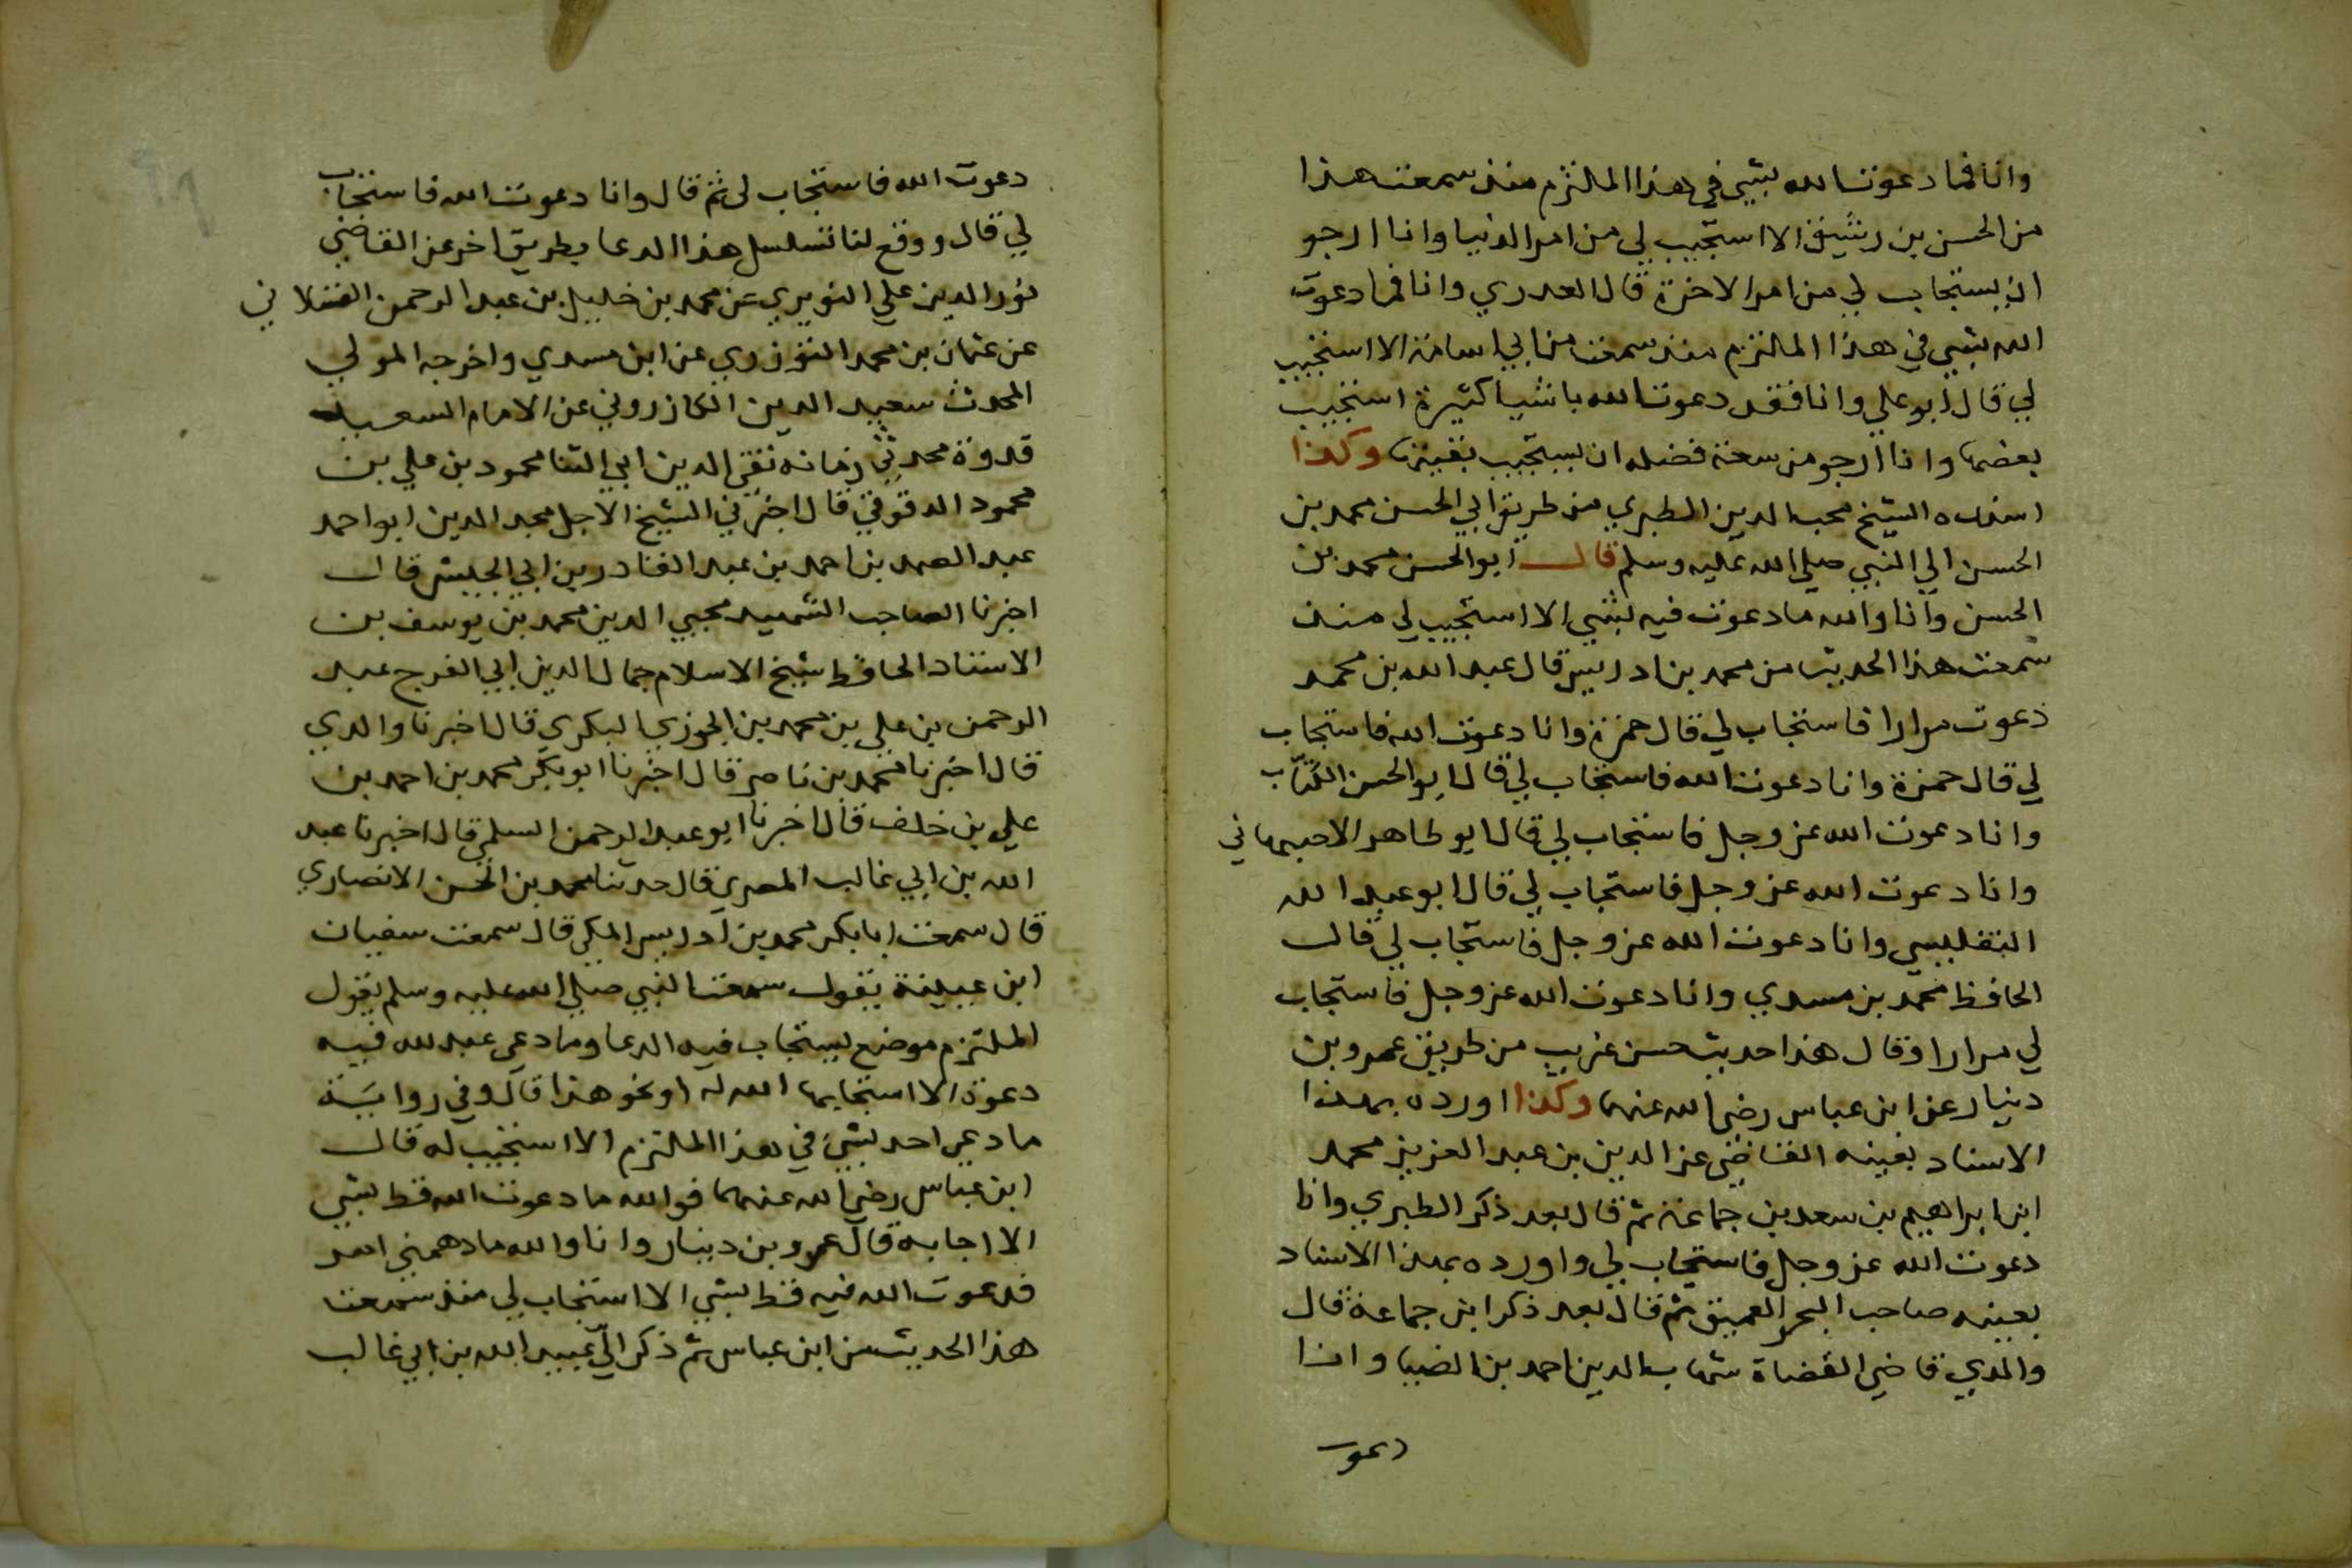 وانا فما دعوت الله بشي في هذا الملتزم منذ سمعت هذا
من الحسن بن رشيق الا استجيب لي من امر الدنيا وانا ارجو
ان يستجاب لي من امر الاخرة قال العدري وانا فما دعوت
الله بشي في هذا الملتزم منذ سمعت من ابي اسامة الا استجيب
لي قال ابو علي وانا فقد دعوت الله باشيا كثيرة استجيب
بعضها وانا ارجو من سعة فضله ان يستجيب بقيتها وكذا
اسنده الشيخ محب الدين الطبري من طريق ابي الحسن محمد بن
الحسن الي النبي صلي الله عليه وسلم قال ابو الحسن محمد بن
الحسن وانا والله ما دعوت فيه بشي الا استجيب لي منذ
سمعت هذا الحديث من محمد بن ادريس قال عبد الله بن محمد
دعوت مرارا فاستجاب لي قال حمزة وانا دعوت الله فاستجاب
لي قال حمزة وانا دعوت الله فاستجاب لي قال ابو الحسن الكتاب
وانا دعوت الله عز وجل فاستجاب لي قال ابو طاهر الاصبهاني
وانا دعوت الله عز وجل فاستجاب لي قال ابو عبد الله
التفليسي وانا دعوت الله عز وجل فاستجاب لي قال
الحافظ محمد بن مسدي وانا دعوت الله عز وجل فاستجاب
لي مرارا وقال هذا حديث حسن غريب من طريق عمرو بن
دينار عن ابن عباس رضي الله عنهما وكذا اورده بهذا
الاسناد بعينه القاضي عز الدين بن عبد العزيز محمد
ابن ابراهيم بن سعد بن جماعة ثم قال بعد ذكر الطبري وانا
دعوت الله عز وجل فاستجاب لي واورده بهذا الاسناد
بعينه صاحب البحر العميق ثم قال بعد ذكر ابن جماعة قال
والدي قاضي القضاة شهاب الدين احمد بن الضيا وانا
دعوت
دعوت الله فاستجاب لي ثم قال وانا دعوت الله فاستجاب
لي قال ووقع لنا تسلسل هذا الدعا بطريق اخر عن القاضي
نور الدين علي النويري عن محمد بن خليل بن عبد الرحمن القسلاني
عن عثمان بن محمد التوزري عن ابن مسدي واخرجه المولي
المحدث سعيد الدين الكازروني عن الامام السعيد
قدوة محدثي زمانه تقي الدين ابي الثنا محمود بن علي بن
محمود الدقوقي قال اخبرني الشيخ الاجل مجد الدين ابو احمد
عبد الصمد بن احمد بن عبد القادر بن ابي الجيش قال
اخبرنا الصاحب الشهيد محيي الدين محمد بن يوسف بن
الاستاد الحافظ شيخ الاسلام جمال الدين ابي الفرج عبد
الرحمن بن علي بن محمد بن الجوزي البكري قال اخبرنا والدي
قال اخبرنا محمد بن ناصر قال اخبرنا ابو بكر محمد بن احمد بن
علي بن خلف قال اخبرنا ابو عبد الرحمن السلمي قال اخبرنا عبد
الله بن ابي غالب المصري قال حدثنا محمد بن الحسن الانصاري
قال سمعت ابا بكر محمد بن ادريس المكي قال سمعت سفيان
ابن عيينة يقول سمعت النبي صلي الله عليه وسلم يقول
الملتزم موضع يستجاب فيه الدعا وما دعي عبد لله فيه
دعوة الا استجابها الله له او نحو هذا قال وفي رواية
ما دعي احد بشئ في هذا الملتزم الا استجيب له قال
ابن عباس رضي الله عنهما فوالله ما دعوت الله قط بشي
الا اجابه قال عمرو بن دينار وانا والله ما دهمني امر
فدعوت الله فيه قط بشي الا استجاب لي منذ سمعت
هذا الحديث من ابن عباس ثم ذكر الي عبيد الله بن ابي غالب